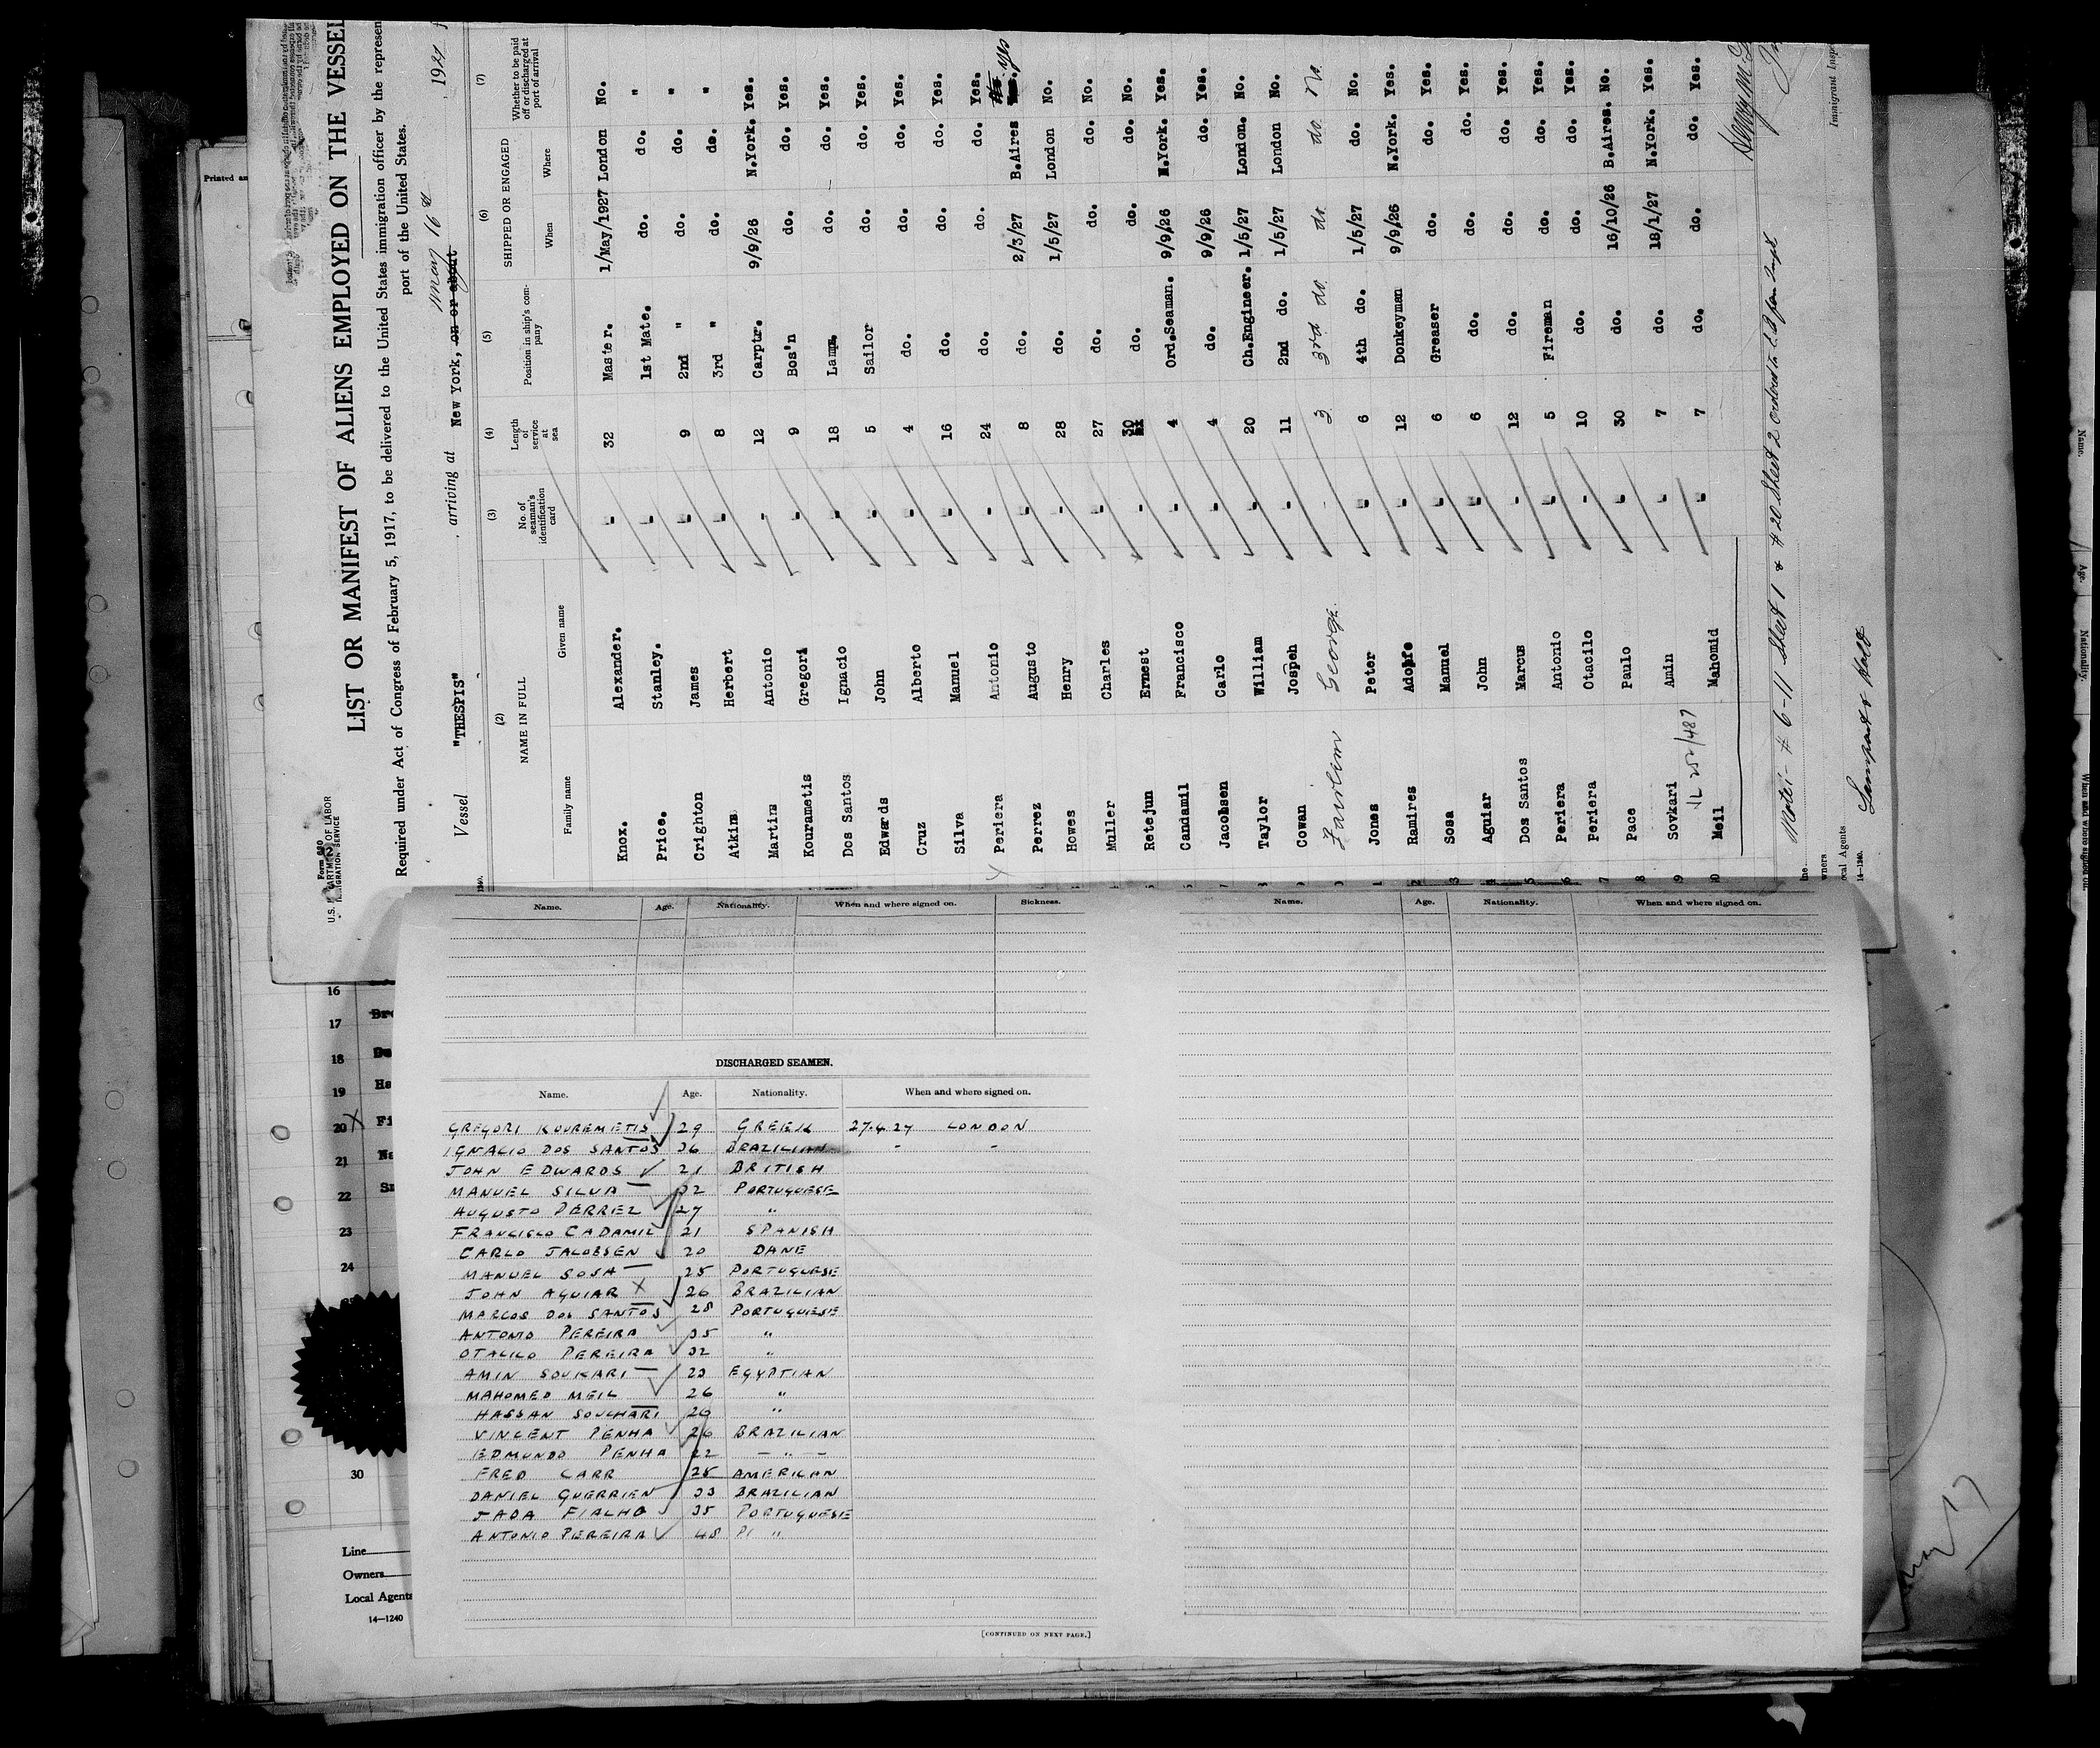 Form 680
U.S. DEPARTMENT OF LABOR
IMMIGRATION SERVICE
LIST OR MANIFEST OF ALIENS EMPLOYED ON THE VESSEL
Required under Act of Congress of February 5, 1917, to be delivered to the United States immigration officer by the represen
port of the United States.
Vessel "THESPIS" arriving at New York, on or about May 16th, 1927
(2) (3) (4) (5) (6) (7)
NAME IN FULL No. of seaman's identification card Length of service at sea Position in ship's company SHIPPED OR ENGAGED Whether to be paid off or discharged at port of arrival
Family name Given name When Where
Knox. Alexander. - 32 Master. 1/May/1927 London No.
Price. Stanley. - 1st Mate. do. do. "
Crighton James - 9 2nd " do. do. "
Atkins Herbert - 8 3rd " do. do. "
Martins Antonio - 12 Carptr. 9/9/26 N.York. Yes.
Kourametis Gregori - 9 Bos'n do. do. Yes.
Dos Santos Ignacio - 18 Lamp. do. do. Yes.
Edwards John - 5 Sailor do. do. Yes.
Cruz Alberto - 4 do. do. do. Yes.
Silva Manuel - 16 do. do. do. Yes.
Periera Antonio - 24 do. do. do. Yes.
Perrez Augusto - 8 do. 2/3/27 B.Aires yes
Howes Henry - 28 do. 1/5/27 London No.
Muller Charles - 27 do. do. do. No.
Retejun Ernest - 30 do. do. do. No.
Candamil Francisco - 4 Ord.Seaman. 9/9/26 N.York. Yes.
Jacobsen Carlo - 4 do. 9/9/26 do. Yes.
Taylor William - 20 Ch.Engineer. 1/5/27 London. No.
Cowan Jospeh - 11 2nd do. 1/5/27 London No.
George 3 3rd do. do. do. No.
Jones Peter - 6 4th do. 1/5/27 do. No.
Ramires Adolfe - 12 Donkeyman 9/9/26 N.York. Yes.
Sosa Manuel - 6 Greaser do. do. Yes.
Aguiar John - 6 do. do. do. Yes.
Dos Santos Marcus - 12 do. do. do. Yes.
Periera Antonio - 5 Fireman do. do. Yes.
Periera Otacilo - 10 do. do. do. Yes.
Pace Paulo - 30 do. 16/10/26 B.Aires. No.
Sovkari Amin - 7 do. 18/1/27 N.York. Yes.
Meil Mahomid - 7 do. do. do. Yes.
Immigrant Insp
14-1240.
Name. Age. Nationality. When and where signed on. Sickness.
Name. Age. Nationality. When and where signed on.
DISCHARGED SEAMEN.
Name. Age. Nationality. When and where signed on.
GREGORI KOUREMETIS 29 GREEK 27.4.27 LONDON
IGNACIO DOS SANTOS 36 BRAZILIAN " "
JOHN EDWARDS 21 BRITISH
MANUEL SILVA 32 PORTUGUESE
AUGUSTO PERREZ 27 "
FRANCISCO CADAMIL 21 SPANISH
CARLO JACOBSEN 20 DANE
MANUEL SOSA 25 PORTUGUESE
JOHN AGUIAR 26 BRAZILIAN
MARCOS DOS SANTOS 28 PORTUGUESE
ANTONIO PEREIRA 35 "
OTACILO PEREIRA 32 "
AMIN SOUKARI 23 EGYPTIAN
MAHOMED MEIL 26 "
HASSAN SOUCHARI 26 "
VINCENT PENHA 26 BRAZILIAN
EDMUNDO PENHA 22 "
FRED CARR 25 AMERICAN
DANIEL GUERRIEN 33 BRAZILIAN
JADA FIALHO 35 PORTUGUESE
ANTONIO PEREIRA 48 "
[CONTINUED ON NEXT PAGE.]
16
17
18
19
20
21
22
23
24
30
Line
Owners
Local Agents
14—1240
Printed an
Name. Age. Nationality. When and where signed on.